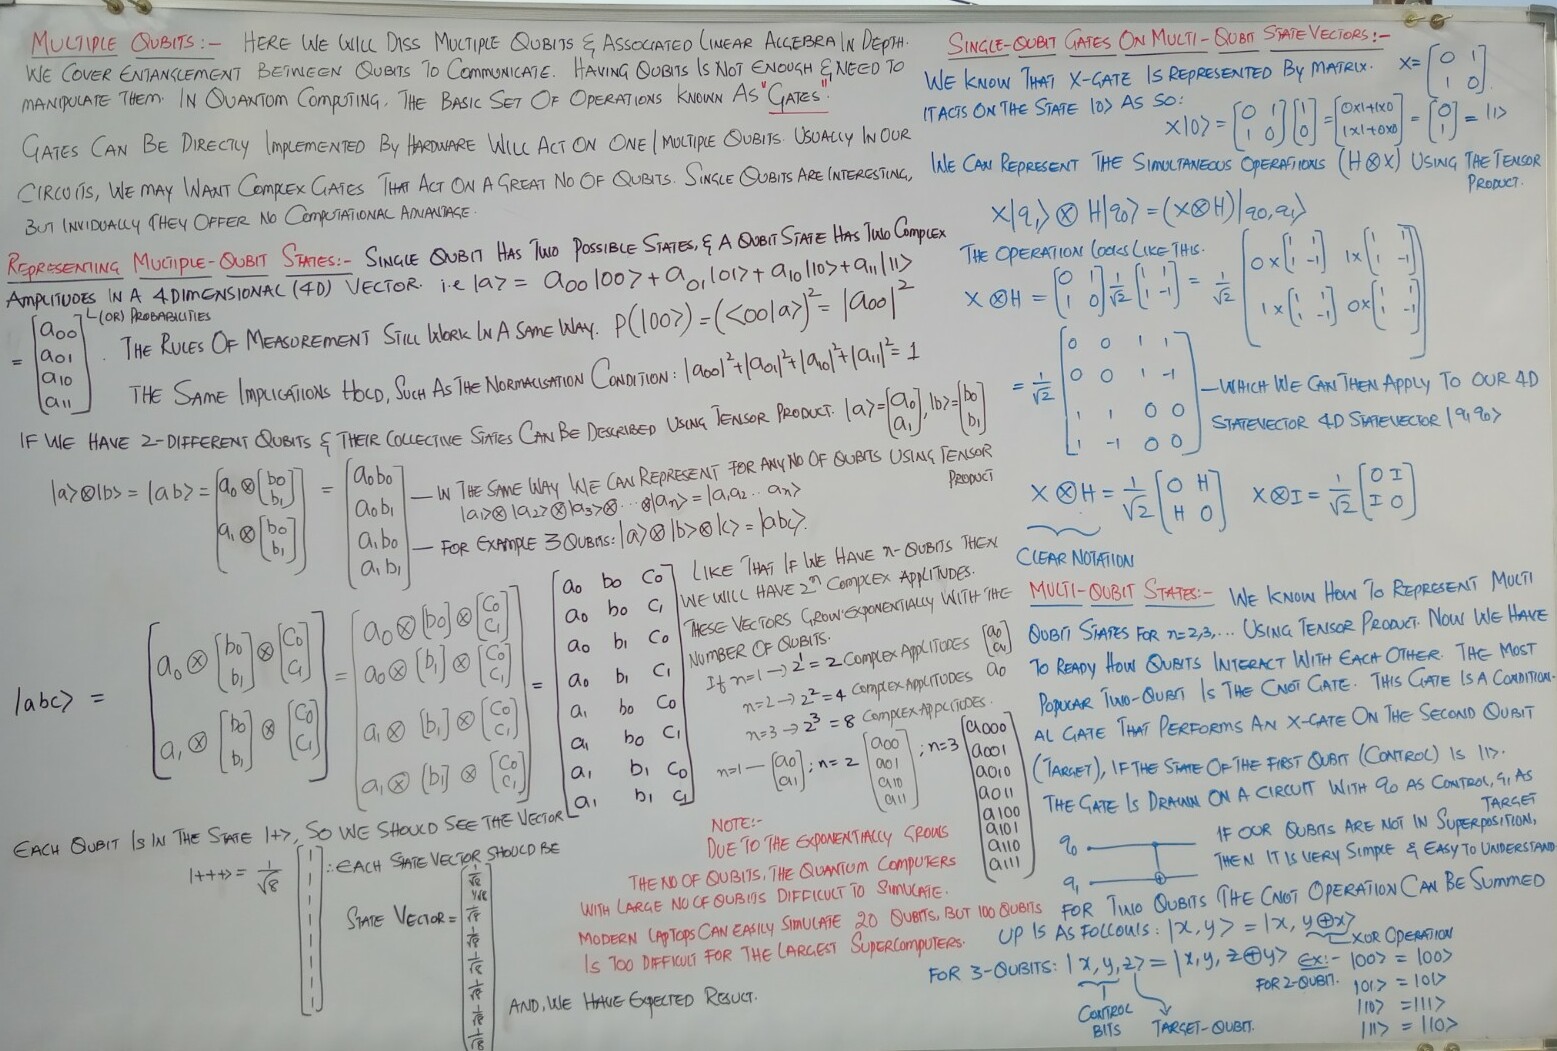 MULTIPLE QUBITS:- HERE WE WILL DISS MULTIPLE QUBITS & ASSOCIATED LINEAR ALGEBRA IN DEPTH.
WE COVER ENTANGLEMENT BETWEEN QUBITS TO COMMUNICATE. HAVING QUBITS IS NOT ENOUGH & NEED TO
MANIPULATE THEM. IN QUANTUM COMPUTING, THE BASIC SET OF OPERATIONS KNOWN AS "GATES".
GATES CAN BE DIRECTLY IMPLEMENTED BY HARDWARE WILL ACT ON ONE/MULTIPLE QUBITS. USUALLY IN OUR
CIRCUITS, WE MAY WANT COMPLEX GATES THAT ACT ON A GREAT NO OF QUBITS. SINGLE QUBITS ARE INTERESTING,
BUT INVIDUALLY THEY OFFER NO COMPUTATIONAL ADVANTAGE.
REPRESENTING MULTIPLE-QUBIT STATES:- SINGLE QUBIT HAS TWO POSSIBLE STATES, & A QUBIT STATE HAS TWO COMPLEX
AMPLITUDES IN A 4DIMENSIONAL (4D) VECTOR. i.e |a> = a00 |00> + a01 |01> + a10 |10> + a11 |11>
(OR) PROBABILITIES
= [a00 a01 a10 a11] . THE RULES OF MEASUREMENT STILL WORK IN A SAME WAY. P(|00>) = (<00|a>)² = |a00|²
THE SAME IMPLICATIONS HOLD, SUCH AS THE NORMALISATION CONDITION: |a00|²+|a01|²+|a10|²+|a11|² = 1
IF WE HAVE 2-DIFFERENT QUBITS & THEIR COLLECTIVE STATES CAN BE DESCRIBED USING TENSOR PRODUCT. |a>=[a0 a1], |b>=[b0 b1]
|a>⊗|b> = |ab> = [a0 ⊗ [b0 b1] a1 ⊗ [b0 b1]] = [a0b0 a0b1 a1b0 a1b1]
— IN THE SAME WAY WE CAN REPRESENT FOR ANY NO OF QUBITS USING TENSOR
PRODUCT
|a1>⊗|a2>⊗|a3>⊗...⊗|an> = |a1a2 .. an>
— FOR EXAMPLE 3 QUBITS: |a>⊗|b>⊗|c> = |abc>.
|abc> = [a0 ⊗ [b0 b1] ⊗ [C0 C1] a1 ⊗ [b0 b1] ⊗ [C0 C1]] = [a0 ⊗ [b0] ⊗ [C0 C1] a0 ⊗ [b1] ⊗ [C0 C1] a1 ⊗ [b1] ⊗ [C0 C1] a1 ⊗ [b1] ⊗ [C0 C1]] =
a0 b0 C0
a0 b0 C1
a0 b1 C0
a0 b1 C1
a1 b0 C0
a1 b0 C1
a1 b1 C0
a1 b1 C1
LIKE THAT IF WE HAVE n-QUBITS THEN
WE WILL HAVE 2ⁿ COMPLEX APPLITUDES.
THESE VECTORS GROW EXPONENTIALLY WITH THE
NUMBER OF QUBITS.
If n=1 → 2¹ = 2 COMPLEX APPLITUDES [a0 a1]
n=2 → 2² = 4 COMPLEX APPLITUDES a0
n=3 → 2³ = 8 COMPLEX APPLITUDES.
n=1 — [a0 a1]; n=2 [a00 a01 a10 a11]; n=3 [a000 a001 a010 a011 a100 a101 a110 a111]
EACH QUBIT IS IN THE STATE |+>, SO WE SHOULD SEE THE VECTOR
|+++> = 1/√8 [1 1 1 1 1 1 1 1] ∴ EACH STATE VECTOR SHOULD BE
STATE VECTOR = [1/√8 1/√8 1/√8 1/√8 1/√8 1/√8 1/√8 1/√8]
AND, WE HAVE EXPECTED RESULT.
NOTE:-
DUE TO THE EXPONENTIALLY GROWS
THE NO OF QUBITS, THE QUANTUM COMPUTERS
WITH LARGE NO OF QUBITS DIFFICULT TO SIMULATE.
MODERN LAPTOPS CAN EASILY SIMULATE 20 QUBITS, BUT 100 QUBITS
IS TOO DIFFICULT FOR THE LARGEST SUPERCOMPUTERS.
SINGLE-QUBIT GATES ON MULTI-QUBIT STATE VECTORS:-
WE KNOW THAT X-GATE IS REPRESENTED BY MATRIX. X= [0 1 1 0]
IT ACTS ON THE STATE |0> AS SO:
X|0> = [0 1 1 0] [1 0] = [0x1+1x0 1x1+0x0] = [0 1] = |1>
WE CAN REPRESENT THE SIMULTANEOUS OPERATIONS (H⊗X) USING THE TENSOR
PRODUCT.
X|q1> ⊗ H|q0> = (X⊗H)|q0,q1>
THE OPERATION LOOKS LIKE THIS.
X ⊗H = [0 1 1 0] 1/√2 [1 1 1 -1] = 1/√2 [0x[1 1 1 -1] 1x[1 1 1 -1] 1x[1 1 1 -1] 0x[1 1 1 -1]]
= 1/√2
0 0 1 1
0 0 1 -1
1 1 0 0
1 -1 0 0
— WHICH WE CAN THEN APPLY TO OUR 4D
STATEVECTOR 4D STATEVECTOR |q1q0>
X ⊗H = 1/√2 [0 H H 0] X⊗I = 1/√2 [0 I I 0]
CLEAR NOTATION
MULTI-QUBIT STATES:- WE KNOW HOW TO REPRESENT MULTI
QUBIT STATES FOR n=2,3,... USING TENSOR PRODUCT. NOW WE HAVE
TO READY HOW QUBITS INTERACT WITH EACH OTHER. THE MOST
POPULAR TWO-QUBIT IS THE CNOT GATE. THIS GATE IS A CONDITION-
AL GATE THAT PERFORMS AN X-GATE ON THE SECOND QUBIT
(TARGET), IF THE STATE OF THE FIRST QUBIT (CONTROL) IS |1>.
THE GATE IS DRAWN ON A CIRCUIT WITH q0 AS CONTROL, q1 AS
TARGET
q0
q1
IF OUR QUBITS ARE NOT IN SUPERPOSITION,
THEN IT IS VERY SIMPLE & EASY TO UNDERSTAND
FOR TWO QUBITS THE CNOT OPERATION CAN BE SUMMED
UP IS AS FOLLOWS: |x,y> = |x, y⊕x>
XOR OPERATION
FOR 3-QUBITS: |x,y,z> = |x,y, z⊕y>
CONTROL
BITS
TARGET-QUBIT.
Ex:- |00> = |00>
FOR 2-QUBIT. |01> = |01>
|10> = |11>
|11> = |10>